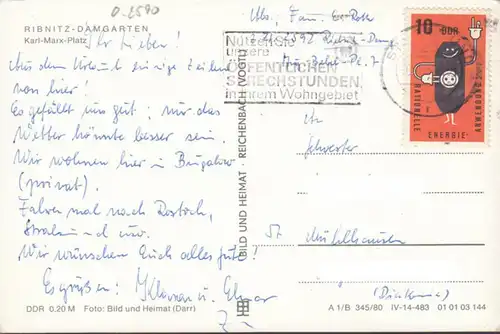 RIBNITZ-DAMGARTEN
Karl-Marx-Platz
Ihr Lieben!
Aus dem Urlaub einige Zeilen
von hier!
Es gefällt uns gut, nur das
Wetter könnte besser sein.
Wir wohnen hier in Bungalow
(privat).
Fahren mal nach Rostock,
Stralsund usw.
Wir wünschen Euch alles gute!
Es grüßen:
DDR 0,20 M Foto: Bild und Heimat (Darr)
BILD UND HEIMAT · REICHENBACH (VOGTL)
Abs, Fam.
Nutzen Sie
unsere
ÖFFENTLICHEN
SPRECHSTUNDEN
in Ihrem Wohngebiet
10 DDR
RATIONELLE
ENERGIE-
ANWENDUNG
Schwester
57 Mühlhausen
A 1/B 345/80 IV-14-483 01 01 03 144